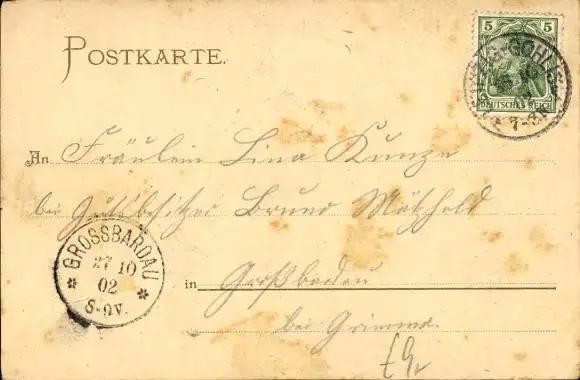 POSTKARTE.
5
DEUTSCHES REICH
7-8
An Fräulein Lina Kunze
bei Gutsbesitzer Bruno
GROSSBARDAU
27 10
02
8-9V.
in Großbardau
bei Grimma.